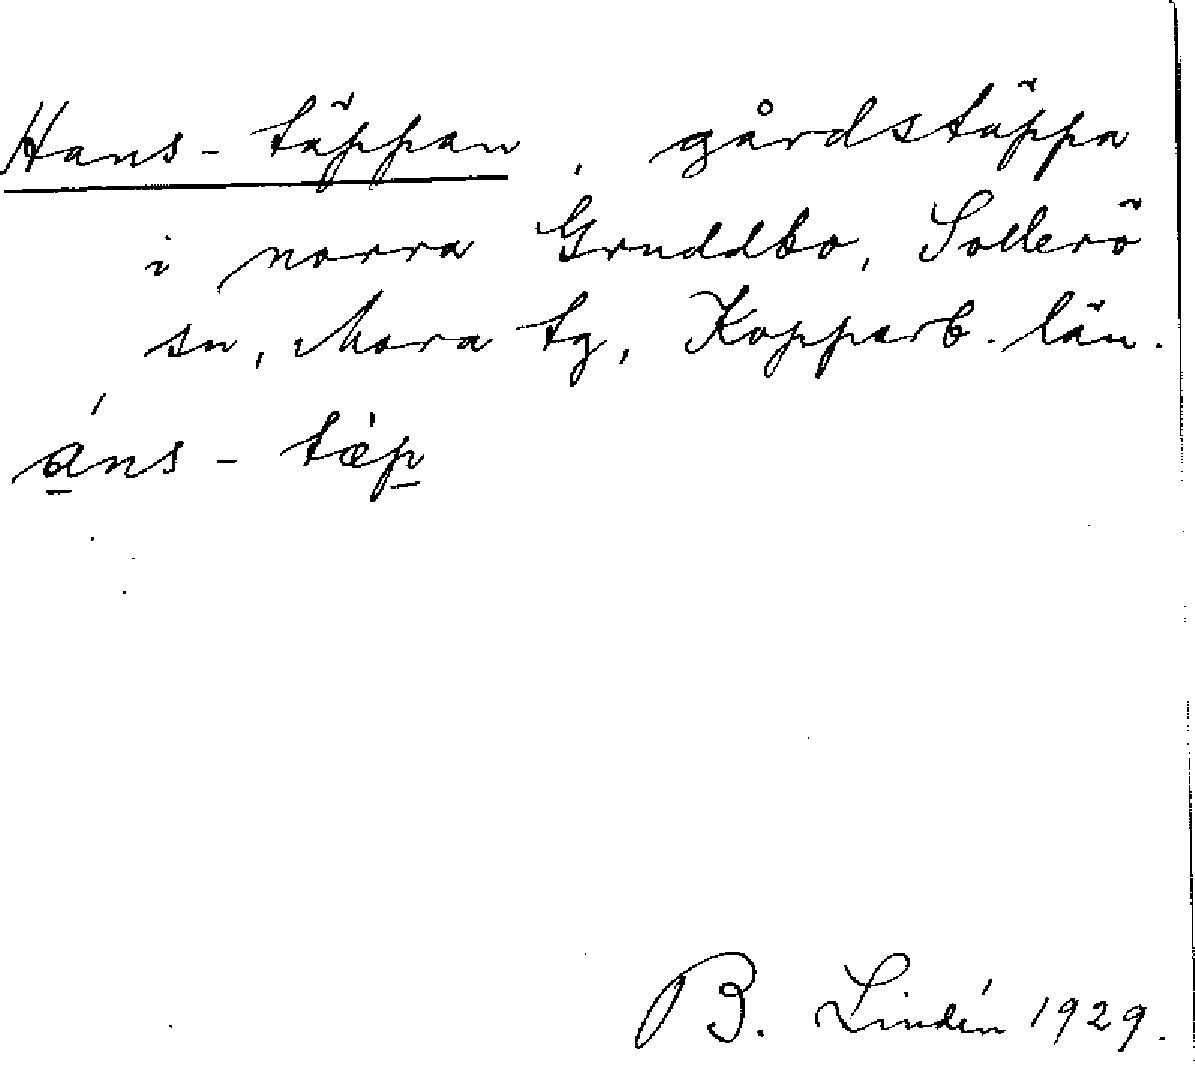 Hans-täppan, gårdstäppa
i norra Gruddbo, Sollerö
sn, Mora tg, Kopparb. län.
áns - tæ̀p
B. Lindén 1929.